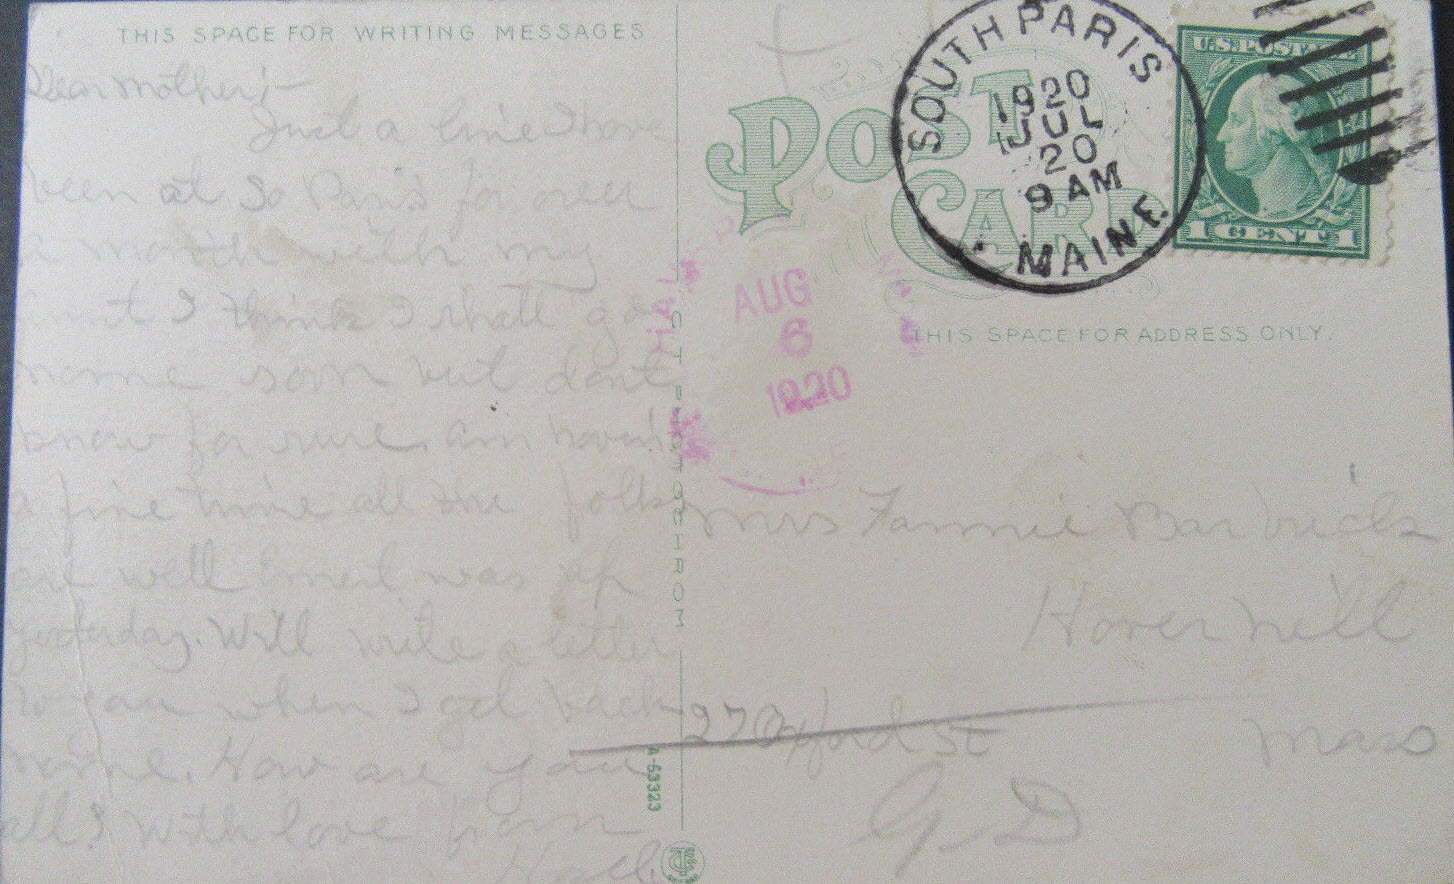 THIS SPACE FOR WRITING MESSAGES
Dear Mother:—
Just a line I have
been at So Paris for over
a month with my
aunt I think I shall go
home soon but dont
know for sure. am havin
a fine time all the folks
are well was up
yesterday. Will write a letter
to you when I get back
home. How are you
all? With love from
POST CARD
SOUTH PARIS
1920
JUL
20
9 AM
MAINE.
U.S. POSTAGE
1 CENT 1
THIS SPACE FOR ADDRESS ONLY.
AUG
6
1920
C.T. PHOTOCHROM
A-53323
Mrs Fannie
Haverhill
27 Oxford St
Mass
G. D